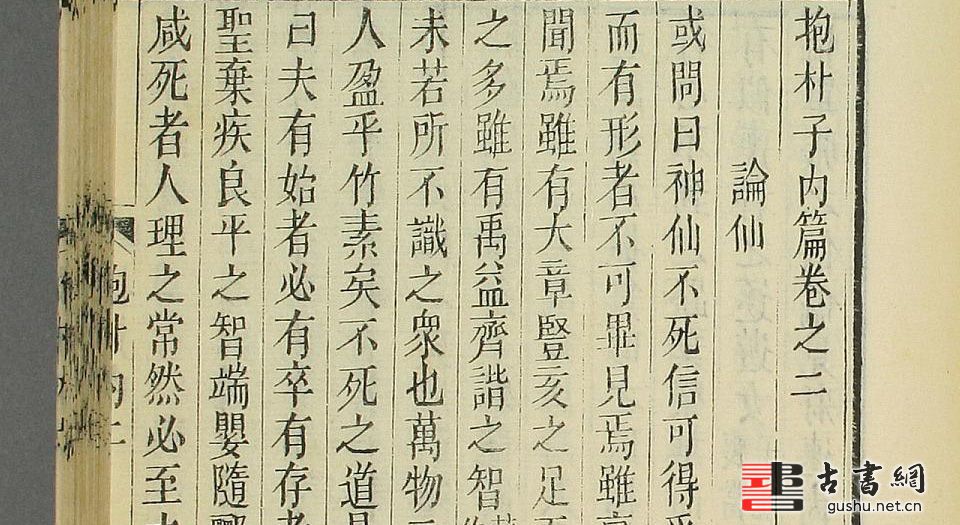 抱朴子內篇卷之二
論仙
或問曰神仙不死信可得
而有形者不可畢見焉雖
聞焉雖有大章豎亥之足
之多雖有禹益齊諧之智
未若所不識之衆也萬物
人盈乎竹素矣不死之道
曰夫有始者必有卒有存
聖棄疾良平之智端嬰隨
咸死者人理之常然必至
古書網
gushu.net.cn